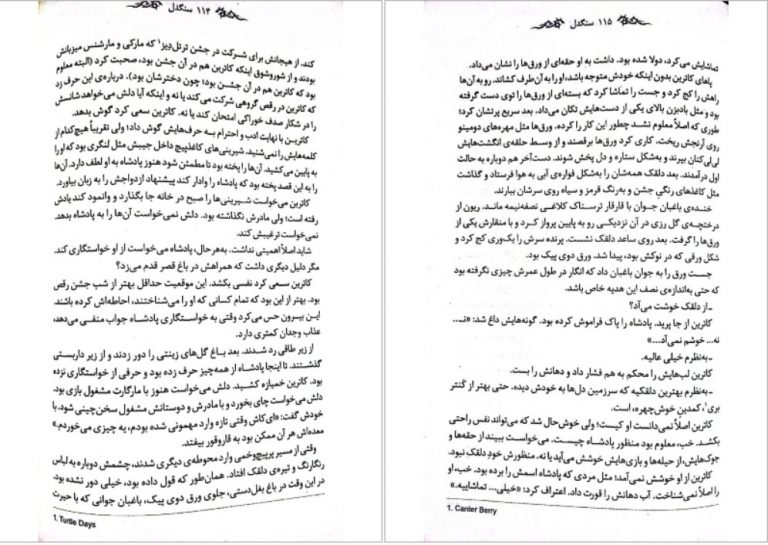 ۱۱۴ سنگدل
کند. از هیجانش برای شرکت در جشن ترتل‌دیز¹ که مارکی و مارشنس میزبانش
بودند و از شوروشوق اینکه کاترین هم در آن جشن بود، صحبت کرد (البته معلوم
بود که کاترین هم در آن جشن بود؛ چون دخترشان بود). درباره‌ی این حرف زد
که کاترین در رقص گروهی شرکت می‌کند یا نه و اینکه آیا دلش می‌خواهد شانسش
را در شکار صدف خوراکی امتحان کند یا نه. کاترین سعی کرد گوش بدهد.
کاترین با نهایت ادب و احترام به حرف‌هایش گوش داد؛ ولی تقریباً هیچ‌کدام از
کلمه‌هایش را نمی‌شنید. شیرینی‌های کاغذپیچ داخل جیبش مثل لنگری بود که او را
به پایین می‌کشید. آن‌ها را پخته بود تا مطمئن شود هنوز پادشاه به او لطف دارد. آن‌ها
را به این قصد پخته بود که پادشاه را وادار کند پیشنهاد ازدواجش را به زبان بیاورد.
کاترین می‌خواست شیرینی‌ها را صبح در خانه جا بگذارد و وانمود کند یادش
رفته است؛ ولی مادرش نگذاشته بود. دلش نمی‌خواست آن‌ها را به پادشاه بدهد.
نمی‌خواست ترغیبش کند.
شاید اصلاً اهمیتی نداشت. به‌هرحال، پادشاه می‌خواست از او خواستگاری کند.
مگر دلیل دیگری داشت که همراهش در باغ قصر قدم می‌زد؟
کاترین سعی کرد نفسی بکشد. این موقعیت حداقل بهتر از شب جشن رقص
بود. بهتر از این بود که تمام کسانی که او را می‌شناختند، احاطه‌اش کرده باشند.
این بیرون حس می‌کرد وقتی به خواستگاری پادشاه جواب منفی می‌دهد،
عذاب وجدان کمتری دارد.
از زیر طاقی رد شدند. بعد باغ گل‌های زینتی را دور زدند و از زیر داربستی
گذشتند. تا اینجا پادشاه از همه‌چیز حرف زده بود و حرفی از خواستگاری نزده
بود. کاترین خمیازه کشید. دلش می‌خواست هنوز با مارگارت مشغول بازی بود.
دلش می‌خواست چای بخورد و با مادرش و دوستانش مشغول سخن‌چینی شود. با
خودش گفت: «ای‌کاش وقتی تازه وارد مهمونی شده بودم، یه چیزی می‌خوردم.»
معده‌اش هر آن ممکن بود به قاروقور بیفتد.
وقتی از مسیر پرپیچ‌وخمی وارد محوطه‌ی دیگری شدند، چشمش دوباره به لباس
رنگارنگ و تیره‌ی دلقک افتاد. همان‌طور که قول داده بود، خیلی دور نشده بود.
در این وقت در باغ بغل‌دستی، جلوی ورق دوی پیک، باغبان جوانی که با حیرت
1. Turtle Days
۱۱۵ سنگدل
تماشایش می‌کرد، دولا شده بود. داشت به او حقه‌ای از ورق‌ها را نشان می‌داد.
پاهای کاترین بدون اینکه خودش متوجه باشد، او را به آن‌طرف کشاند. رو به آن‌ها
راهش را کج کرد و جست را تماشا کرد که بسته‌ای از ورق‌ها را توی دست گرفته
بود و مثل بادبزن بالای یکی از دست‌هایش تکان می‌داد. بعد سریع پرتشان کرد؛
طوری که اصلاً معلوم نشد چطور این کار را کرده. ورق‌ها مثل مهره‌های دومینو
روی آرنجش ریخت. کاری کرد ورق‌ها برقصند و از وسط حلقه‌ی انگشت‌هایش
لی‌لی‌کنان بپرند و به‌شکل ستاره و دل پخش شوند. دست‌آخر هم دوباره به حالت
اول درآمدند. بعد دلقک همه‌شان را به‌شکل فواره‌ی آبی به هوا فرستاد و گذاشت
مثل کاغذهای رنگیِ جشن و به‌رنگ قرمز و سیاه روی سرشان ببارند.
خنده‌ی باغبان جوان با قارقار ترسناک کلاغی نصفه‌نیمه ماند. ریون از
درختچه‌ی گل رزی در آن نزدیکی رو به پایین پرواز کرد و با منقارش یکی از
ورق‌ها را گرفت. بعد روی ساعد دلقک نشست. پرنده سرش را یک‌وری کج کرد و
شکل ورقی که در نوکش بود، پیدا شد. ورق دوی پیک بود.
جست ورق را به جوان باغبان داد که انگار در طول عمرش چیزی نگرفته بود
که حتی به‌اندازه‌ی نصف این هدیه خاص باشد.
ـ از دلقک خوشت می‌آد؟
کاترین از جا پرید. پادشاه را پاک فراموش کرده بود. گونه‌هایش داغ شد: «نـ...
نه... خوشم نمی‌آد...»
ـ به‌نظرم خیلی عالیه.
کاترین لب‌هایش را محکم به هم فشار داد و دهانش را بست.
ـ به‌نظرم بهترین دلقکیه که سرزمین دل‌ها به خودش دیده. حتی بهتر از کَنتر
بری¹، کمدین خوش‌چهره، است.
کاترین اصلاً نمی‌دانست او کیست؛ ولی خوش‌حال شد که می‌تواند نفس راحتی
بکشد. خب، معلوم بود منظور پادشاه چیست. می‌خواست ببیند از حقه‌ها و
جوک‌هایش، از حیله‌ها و بازی‌هایش خوشش می‌آید یا نه. منظورش خودِ دلقک نبود.
کاترین از او خوشش نمی‌آمد؛ مثل مردی که پادشاه اسمش را برده بود. خب، او
را اصلاً نمی‌شناخت. آب دهانش را قورت داد. اعتراف کرد: «خیلی... تماشاییه.»
1. Canter Berry